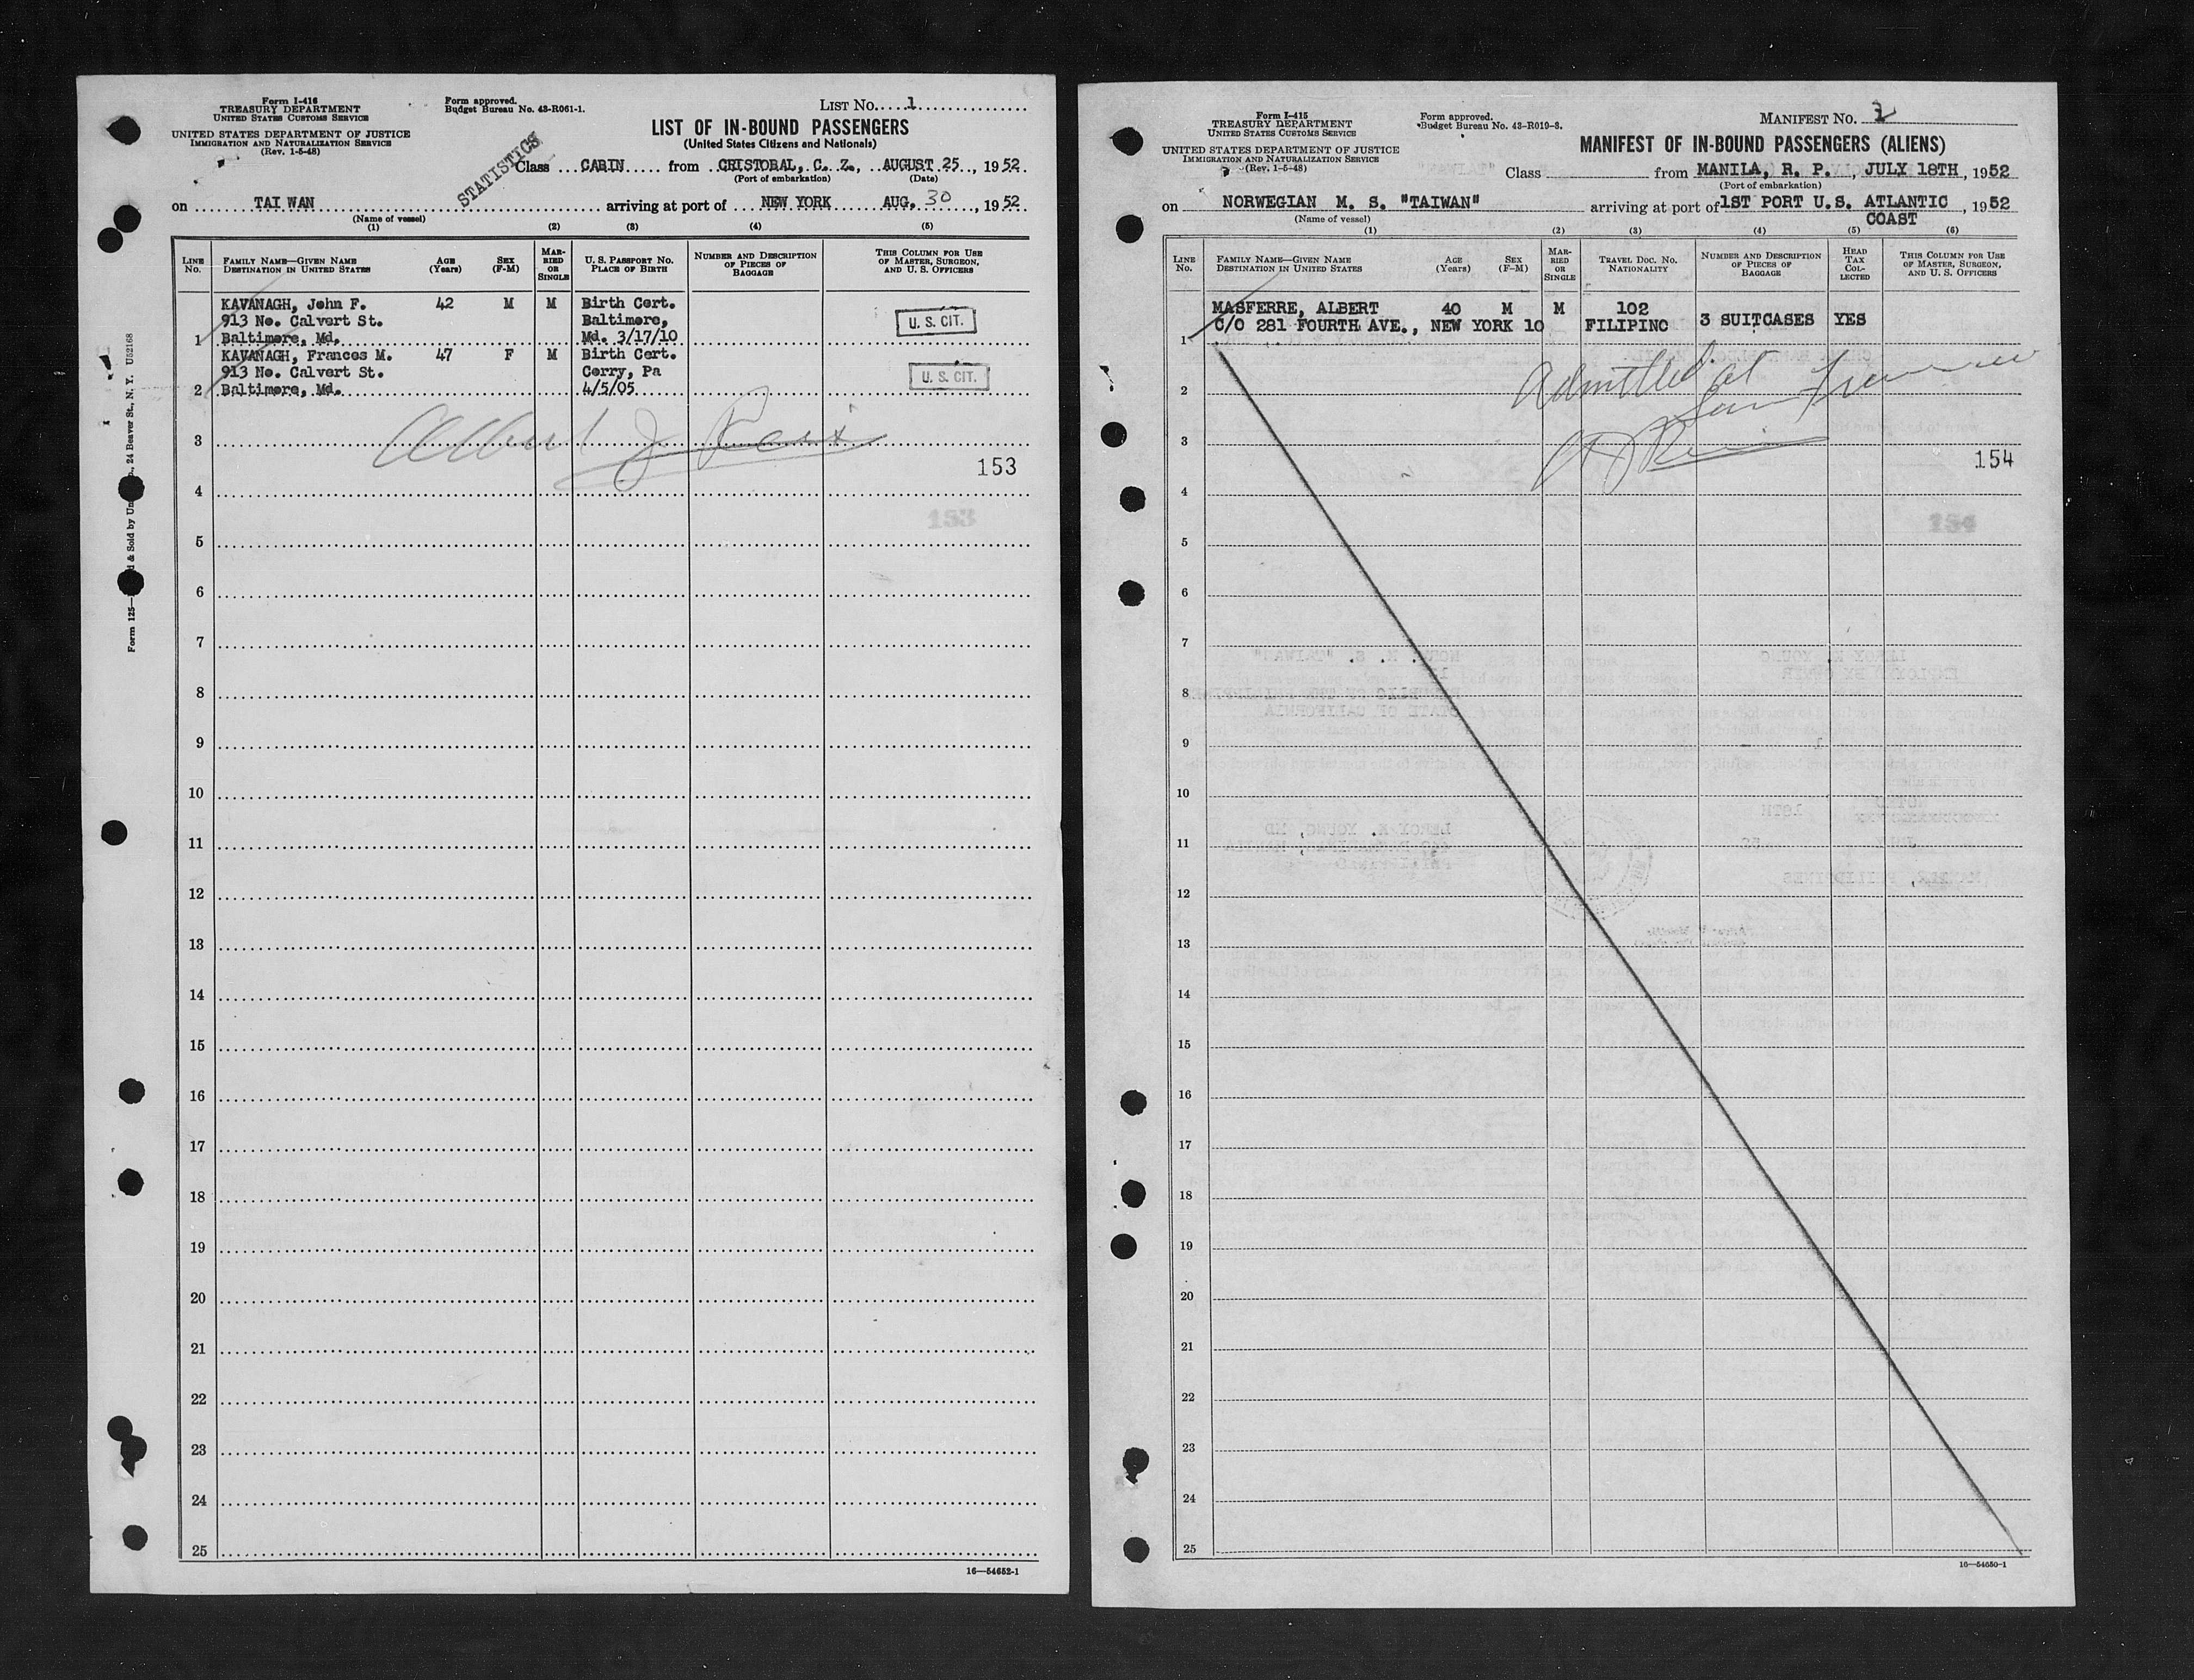 Form I-416
TREASURY DEPARTMENT
UNITED STATES CUSTOMS SERVICE
UNITED STATES DEPARTMENT OF JUSTICE
IMMIGRATION AND NATURALIZATION SERVICE
(Rev. 1-5-48)
Form approved.
Budget Bureau No. 43-R061-1.
LIST No. 1
LIST OF IN-BOUND PASSENGERS
(United States Citizens and Nationals)
STATISTICS
Class CABIN from CRISTOBAL, C. Z., AUGUST 25, 1952
(Port of embarkation) (Date)
on TAI WAN arriving at port of NEW YORK AUG. 30, 1952
(Name of vessel)
(1) (2) (3) (4) (5)
LINE No. FAMILY NAME—GIVEN NAME DESTINATION IN UNITED STATES AGE (Years) SEX (F-M) MARRIED OR SINGLE U. S. PASSPORT NO. PLACE OF BIRTH NUMBER AND DESCRIPTION OF PIECES OF BAGGAGE THIS COLUMN FOR USE OF MASTER, SURGEON, AND U. S. OFFICERS
KAVANAGH, John F. 42 M M Birth Cert.
913 No. Calvert St. Baltimore, U. S. CIT.
1 Baltimore, Md. Md. 3/17/10
KAVANAGH, Frances M. 47 F M Birth Cert.
913 No. Calvert St. Corry, Pa U. S. CIT.
2 Baltimore, Md. 4/5/05
3 Albert J
153
4
153
5
6
7
8
9
10
11
12
13
14
15
16
17
18
19
20
21
22
23
24
25
16—54652-1
Form 125— & Sold by 24 Beaver St., N. Y. U52168
Form I-415
TREASURY DEPARTMENT
UNITED STATES CUSTOMS SERVICE
UNITED STATES DEPARTMENT OF JUSTICE
IMMIGRATION AND NATURALIZATION SERVICE
(Rev. 1-5-48)
Form approved.
Budget Bureau No. 43-R019-3.
MANIFEST No.
MANIFEST OF IN-BOUND PASSENGERS (ALIENS)
Class from MANILA, R. P., JULY 18TH, 1952
(Port of embarkation)
on NORWEGIAN M. S. "TAIWAN" arriving at port of 1ST PORT U.S. ATLANTIC COAST, 1952
(Name of vessel)
(1) (2) (3) (4) (5) (6)
LINE No. FAMILY NAME—GIVEN NAME DESTINATION IN UNITED STATES AGE (Years) SEX (F-M) MARRIED OR SINGLE TRAVEL DOC. NO. NATIONALITY NUMBER AND DESCRIPTION OF PIECES OF BAGGAGE HEAD TAX COLLECTED THIS COLUMN FOR USE OF MASTER, SURGEON, AND U. S. OFFICERS
MASFERRE, ALBERT 40 M M 102
C/O 281 FOURTH AVE., NEW YORK 10 FILIPINO 3 SUITCASES YES
1
Admitted at
2 San Francisco
3
154
4
154
5
6
7
8
9
10
11
12
13
14
15
16
17
18
19
20
21
22
23
24
25
16—54650-1